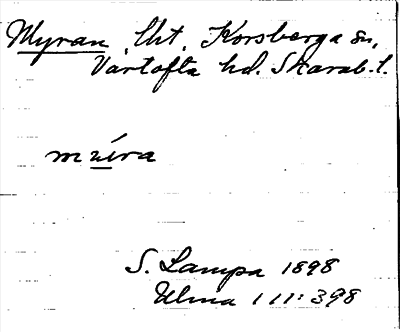 Myran, lht, Korsberga sn,
Vartofta hd. Skarab. l.
mu̲i̲ra
S. Lampa 1898
Ulma 111:398